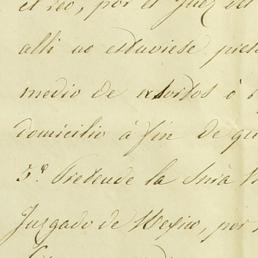 el reo, por el Juez del
alli no estuviese pre
medio de exortos ó
domicilio á fin de q
5º Pretende la Sria
Juzgado de Mexico, por